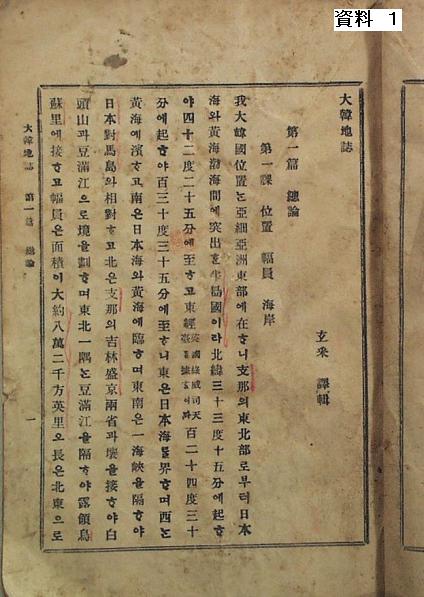 資料 1
大韓地誌
玄采 譯輯
第一篇 總論
第一課 位置 幅員 海岸
我大韓國位置ᄂᆞᆫ亞細亞洲東部에在ᄒᆞ니支那의東北部로부터日本
海와黃海渤海間에突出ᄒᆞᆫ半島國이라北緯三十三度十五分에起ᄒᆞ
야四十二度二十五分에至ᄒᆞ고東經 百二十四度三十
分에起ᄒᆞ야百三十度三十五分에至ᄒᆞ니東은日本海ᄅᆞᆯ界ᄒᆞ며西ᄂᆞᆫ
黃海에濱ᄒᆞ고南은日本海와黃海에臨ᄒᆞ며東南은一海峽을隔ᄒᆞ야
日本對馬島와相對ᄒᆞ고北은支那의吉林盛京兩省과壤을接ᄒᆞ야白
頭山과豆滿江으로境을劃ᄒᆞ며東北一隅ᄂᆞᆫ豆滿江을隔ᄒᆞ야露領烏
蘇里에接ᄒᆞ고幅員은面積이大約八萬二千方英里오長은北東으로
大韓地誌 第一篇 總論 一